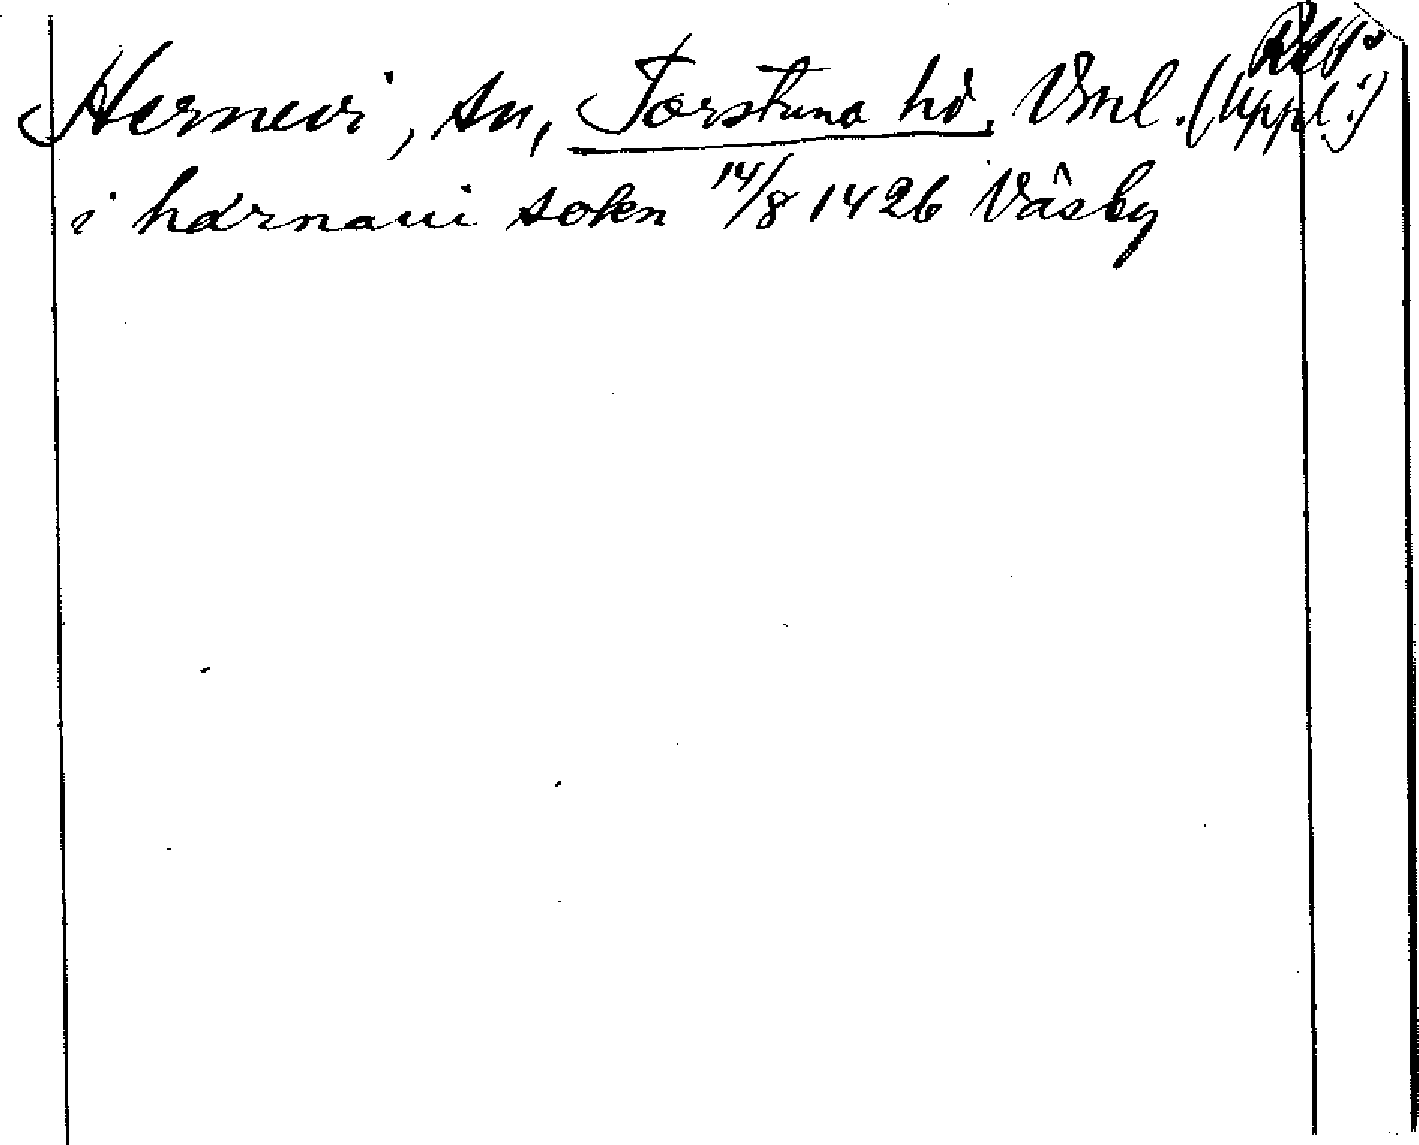 Hernevi, sn, Torstuna hd, Vsml. (Uppl.)
i härnaui sokn 14/8 1426 Väsby